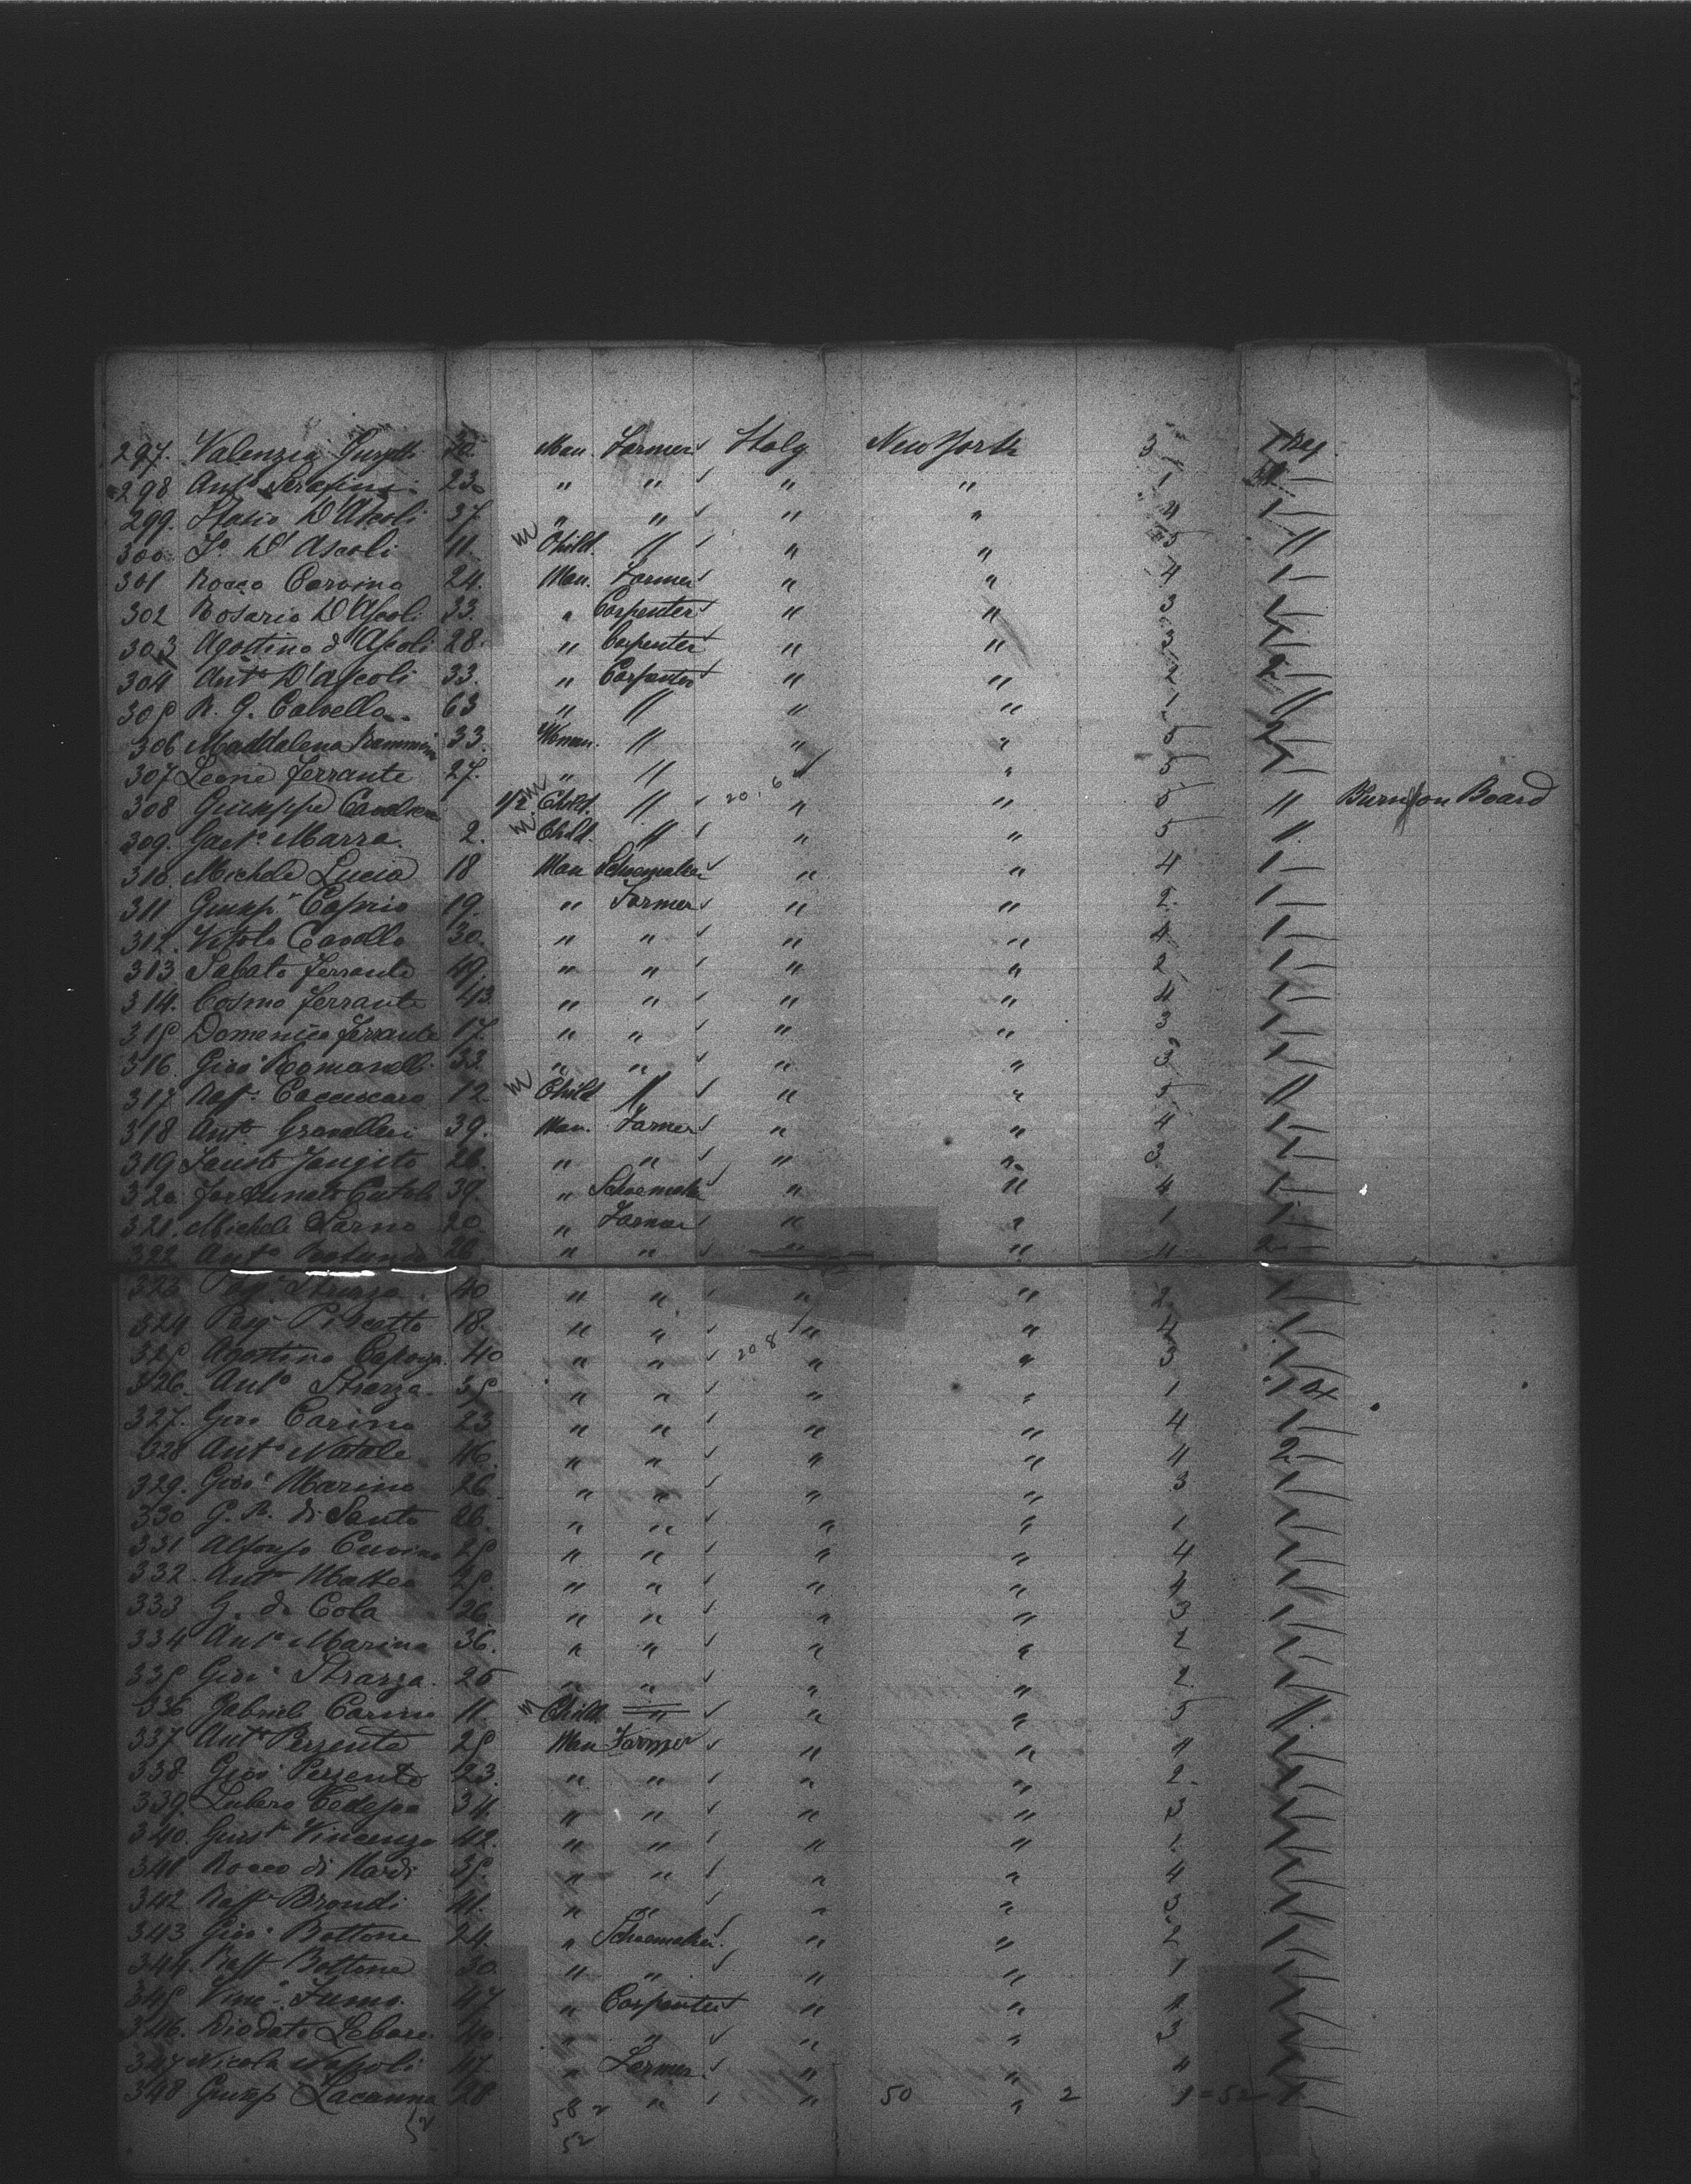 297. Valenzia Giusepp 30. Man. Farmer Italy New York 3 1 Beg.
298 Anto Serafini 23 " " " " 1
299. Stasio D'Ascoli 37 " " " " 4 1
300. Fo D'Ascoli 11. m Child. " " " 5 "
301 Rocco Corvino 24. Man. Farmer " " 4 1
302 Rosario D'Ascoli 33. " Carpenter " " 3 1
303 Agostino d'Ascoli 28. " Carpenter " " 3 1
304 Anto D'Ascoli 33. " Carpenter " " 2 2
305 R. G. Calvello 63 " " " " 1 "
306 Maddalena 33. Woman. " " " 5 2
307 Leone Ferrante 27. " " " " 5 1
308 Giuseppe 1/2 m Child. " 20.6 " " 5 " Burn on Board
309. Gaeto Marra. 2. m Child. " " " 5 "
310. Michele Lucia 18 Man Schoemaker " " 4 1
311 Giusep Caprio 19. " Farmer " " 2. 1
312. Vitolo Cavallo 30. " " " " 4 1
313 Sabato Ferrante 49. " " " " 2 1
314. Cosmo Ferrante 43 " " " " 4 1
315 Domenico Ferrante 17. " " " " 3 1
316. Giovi Romanelli 33. " " " " 3 1
317 Raff. Cacciscaro 12 m Child " " " 5 "
318 Anto Gravalleri 39. Man. Farmer " " 4 1
319 Fausto 26. " " " " 3 1
320 Fortunato Cutolo 39. " Schoemaker " " 4 1
321. Michele Sarno 20. " Farmer " " 1 1
322 Anto 26 " " " " 4 2
323 Pasq. Strazza. 40 " " " " 2 1
324 Pasq. Piscetto 18. " " 20 8 " " 4 1
325 Agostino 40 " " " " 3 1
326. Anto Strazza. 35 " " " " 1 1
327. Giov Carino 23 " " " " 4 1
328 Anto Natale 46. " " " " 4 2
329. Giovi Marino 26 " " " " 3 1
330 G. R. di Santo 26. " " " " 1 1
331 Alfonso Cervino 25 " " " " 4 1
332. Anto Matteo 25. " " " " 4 1
333 G. di Cola 26 " " " " 3 1
334 Anto Marino 36. " " " " 2 1
335 Giovi Strazza. 25 " " " " 2 1
336 Gabriele Carino 11. m Child. " " " 5 "
337. Anto Pezzente 25 Man Farmer " " 4 1
338. Giovi Pezzente 23. " " " " 2 1
339. Libero Tedesco 34. " " " " 3 1
340. Vincenzo 42. " " " " 1. 1
341 Rocco di Nardi 35. " " " " 4 1
342 Raff Brondi 41. " " " " 3 1
343 Giovi Bottone 24. " Schoemaker. " " 2 1
344. Raff Bottone 30. " " " " 1 1
345 Vinc. Fumo. 47. " Carpenter " " 4 1
346. Diodato 40. " " " " 3 1
347 Nicola Napoli 47. " Farmer. " " 4 1
348 Giusep Lacanna 28 " " 50 " 2 1 = 52 1
52 58 2
52